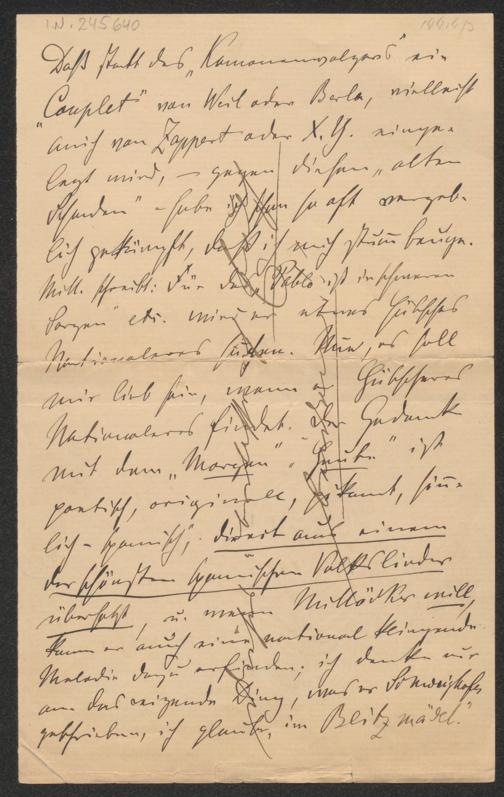 I.N. 245.640
Daß statt des „Romanenwalzers" ein
„Couplet" von Weil oder Berla, vielleicht
auch von Zappert oder X.Y. einge-
legt wird, – gegen diesen „alten
Schaden" – habe ich schon so oft vergeb-
lich gekämpft, daß ich mich stumm beuge.
Mill. schreibt: Für den „Pablo ist in schweren
Sorgen" etc. wird er etwas Hübsches
Nationaleres suchen. Nun, es soll
mir lieb sein, wenn er Hübscheres
Nationaleres findet. Der Gedanke
mit dem „Morgen" „heute" ist
poetisch, originell, pikant, sinn-
lich – spanisch, direct aus einem
der schönsten spanischen Volkslieder
übersetzt, u. wenn Millöcker will,
kann er auch eine national klingende
Melodie dazu erfinden; ich denke nur
an das reizende Ding, was er
geschrieben, ich glaube, im Blitzmädel."